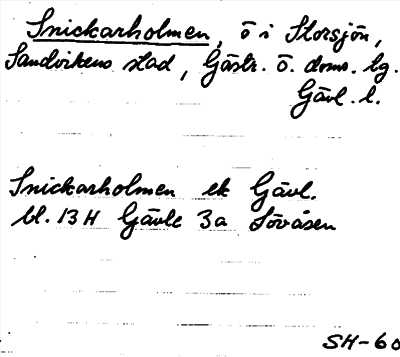 Snickarholmen, ö i Storsjön,
Sandvikens stad, Gästr. ö. doms. tg.
Gävl. l.
Snickarholmen ek Gävl.
bl. 13 H Gävle 3a Sövåsen
SH-60